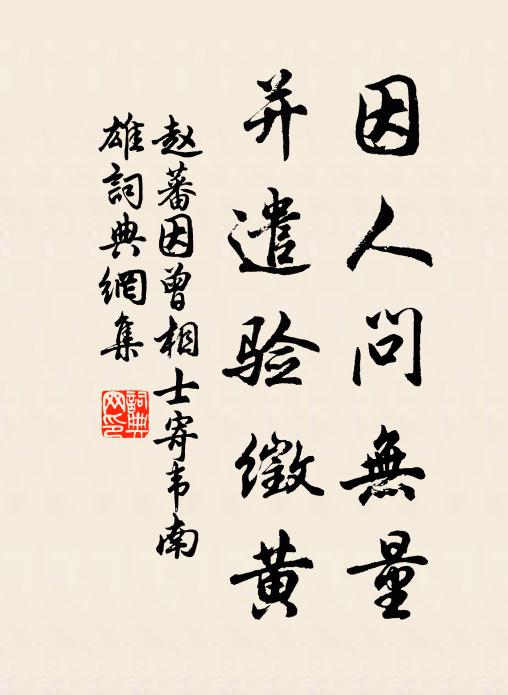 因人问無量
并遣验徵黄
赵蕃因曾相士寄韦南
雄詞典網集
詞典
网印